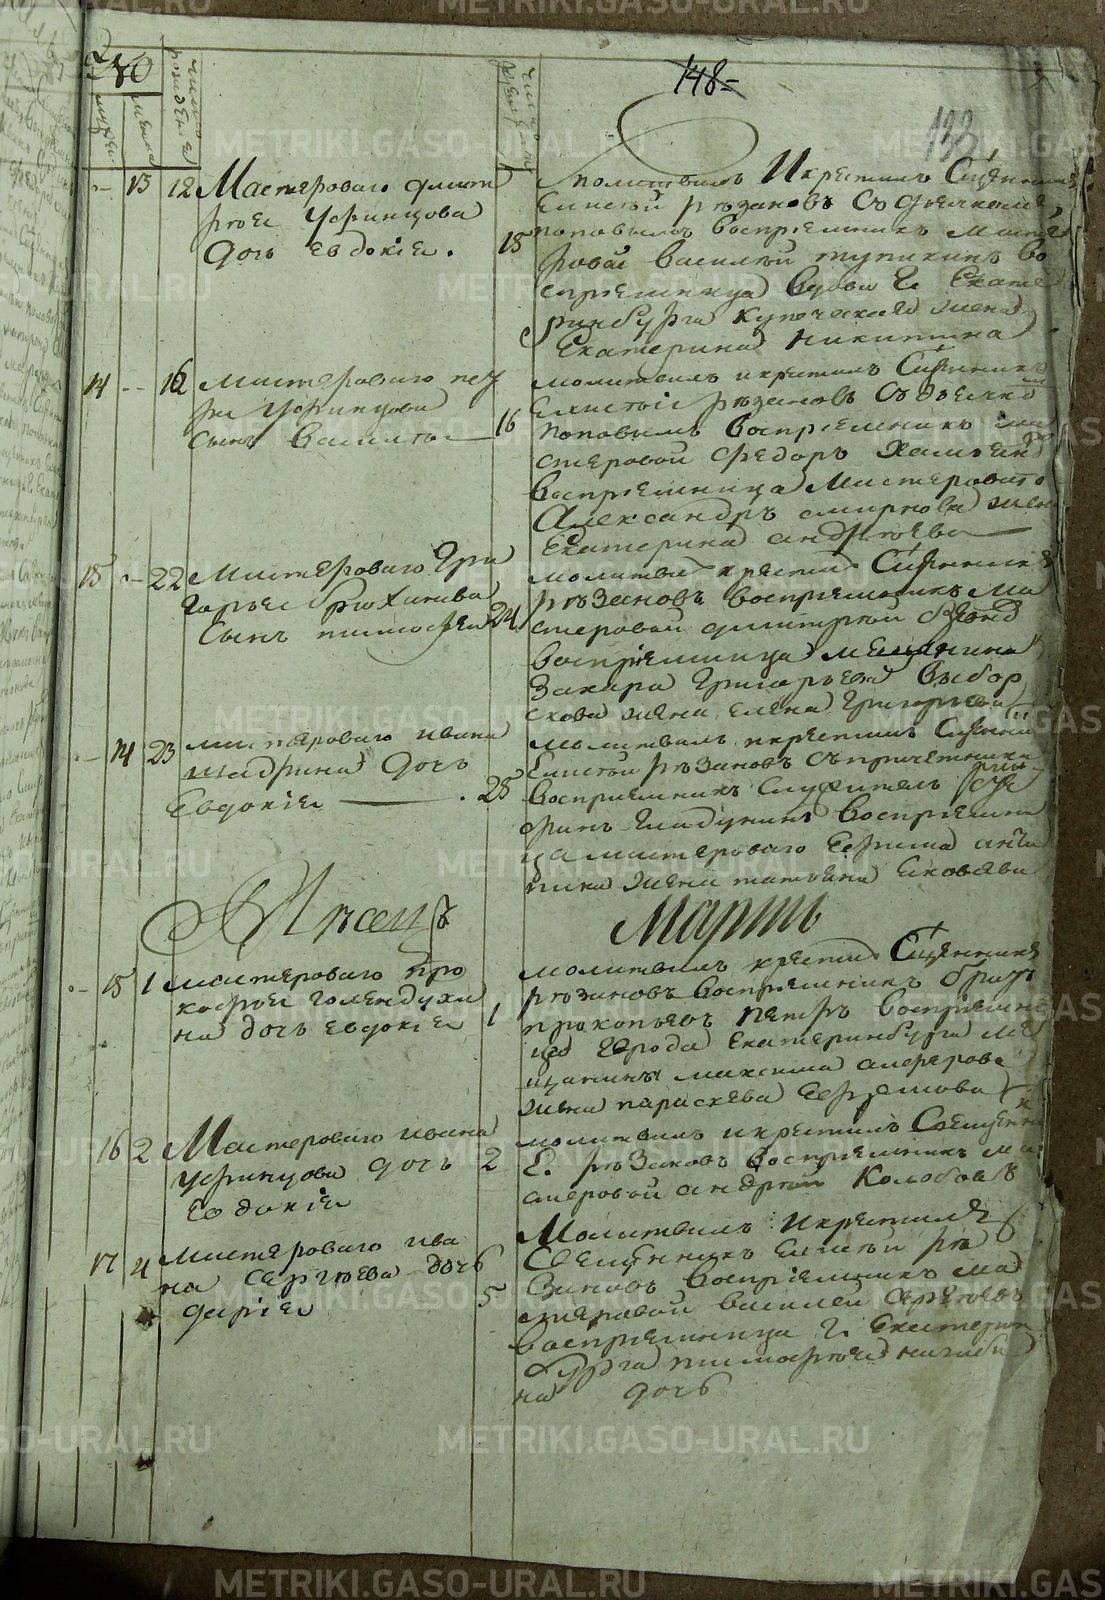 148=
133
число рожденiя
13 12 Мастероваго Дмит
рiя Уфинцова
дочь Евдокiя.
15
молитвилъ И крестилъ Сщенник
Елисѣй рѣзановъ съ дьячкомъ
поповымъ воспрiемникъ масте
ровой василей тупикинъ во
спрiемница вдова Г. Екате
ринбурга купеческая жена
Екатерина никитина
14 -- 16 мастероваго пет
ра Уфинцова
сынъ Василiй
16
молитвилъ и крестилъ Сщенникъ
Елисѣй рѣзановъ съ дьячко
поповымъ воспрiемникъ ма
стеровой Федоръ
воспрiемница мастероваго
Александръ смирнова жена
Екатерина андрѣева
15 -- 22 Мастероваго Гри
горья
сынъ тимофей 24
молитви крести Сщенникъ
рѣзановъ воспрiемникъ ма
стеровой дмитрей
воспрiемница мещанина
Захара Григорьева Выбор
скова жена елена Григорьева
-- 14 23 мастероваго ивана
шадрина дочь
Евдокiя . 25
молитвилъ и крестилъ Сщенник
Елисѣй рѣзановъ съ причетники
воспрiемникъ служитель
воспрiемни
ца мастероваго Ефима
жена татьяна Яковлева
Мѣсецъ Мартъ
-- 15 1 мастероваго про
кофья голендухи
на дочь евдокiя 1
молитвилъ крести Сщенникъ
рѣзановъ воспрiемникъ братъ
прокопьевъ петръ воспрiемни
ца города Екатеринбурга ме
щанина максима алферова
жена параскева
16 2 Мастероваго ивана
Уфинцова дочь 2
Евдокiя
молитвилъ и крестилъ Священни
Е. рѣзановъ воспрiемникъ ма
стеровой андрѣй Колобовъ
17 4 Мастероваго ива
на сергѣева дочь
дарiя 5
Молитвилъ И крестилъ
Священникъ Елисѣй рѣ
зановъ воспрiемникъ ма
стеровой василей
воспрiемница г. Екатерин
бурга тимофѣя
на дочь
METRIKI.GASO-URAL.RU